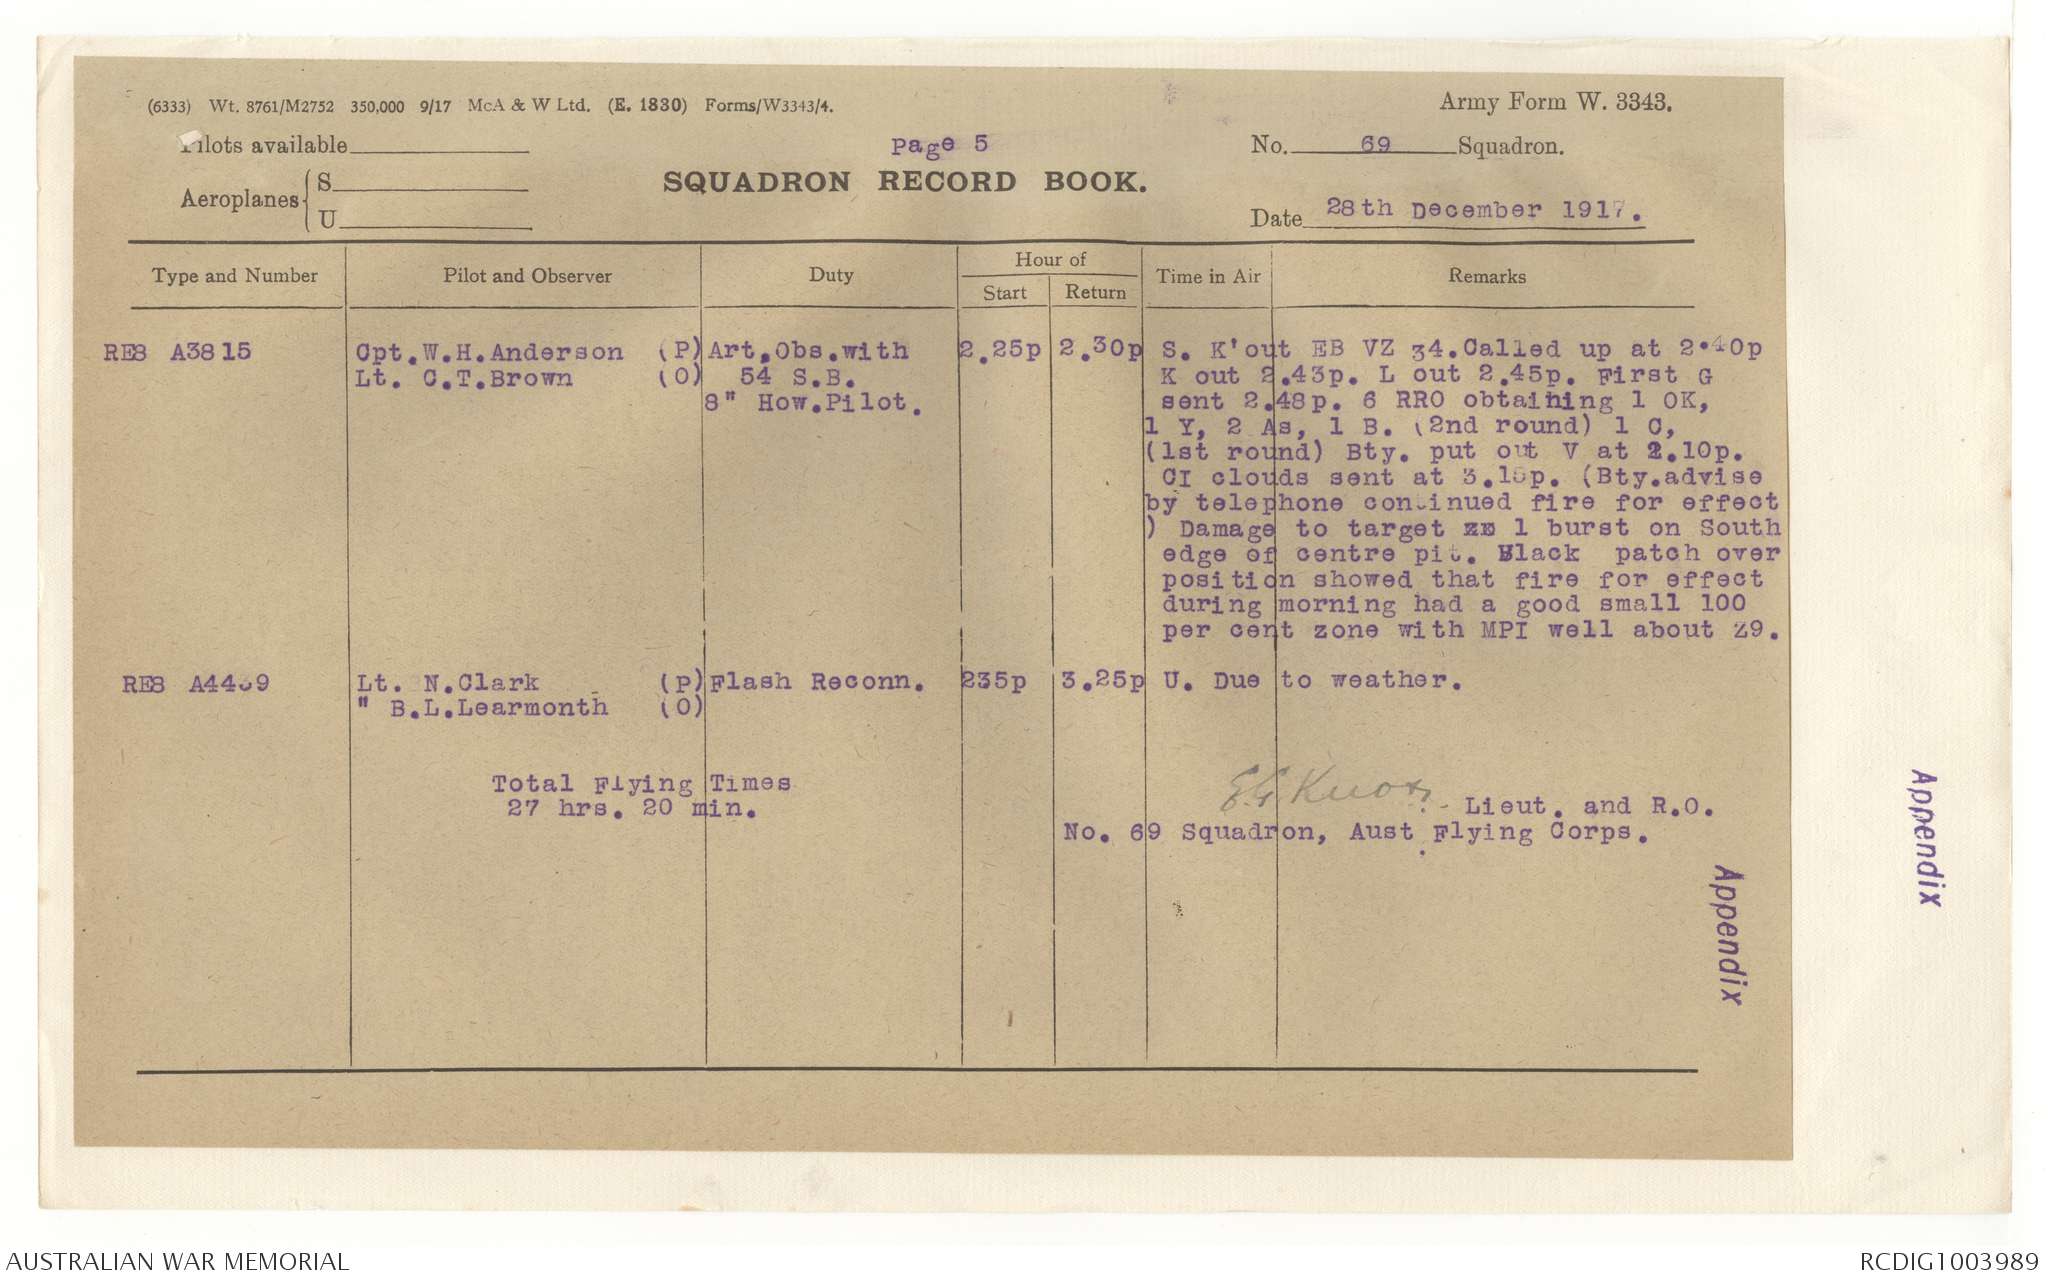 (6333) Wt. 8761/M2752 350,000 9/17 McA & W Ltd. (E. 1830) Forms/W3343/4.
Army Form W. 3343.
Pilots available
Page 5
No. 69 Squadron.
Aeroplanes { S
U
SQUADRON RECORD BOOK.
Date 28th December 1917.
Type and Number
Pilot and Observer
Duty
Hour of
Start
Return
Time in Air
Remarks
RE8 A3815
Cpt.W.H.Anderson (P)
Lt. C.T.Brown (O)
Art.Obs.with
54 S.B.
8" How.Pilot.
2.25p
2.30p
S. K'out EB VZ 34.Called up at 2.40p
K out 2.43p. L out 2.45p. First G
sent 2.48p. 6 RRO obtaining 1 OK,
1 Y, 2 As, 1 B. (2nd round) 1 C,
(1st round) Bty. put out V at 2.10p.
CI clouds sent at 3.15p. (Bty.advise
by telephone continued fire for effect
) Damage to target 1 burst on South
edge of centre pit. Black patch over
position showed that fire for effect
during morning had a good small 100
per cent zone with MPI well about Z9.
RE8 A4439
Lt. N.Clark (P)
" B.L.Learmonth (O)
Flash Reconn.
235p
3.25p
U. Due to weather.
Total Flying Times
27 hrs. 20 min.
EG Knox Lieut. and R.O.
No. 69 Squadron, Aust Flying Corps.
Appendix
Appendix
AUSTRALIAN WAR MEMORIAL
RCDIG1003989